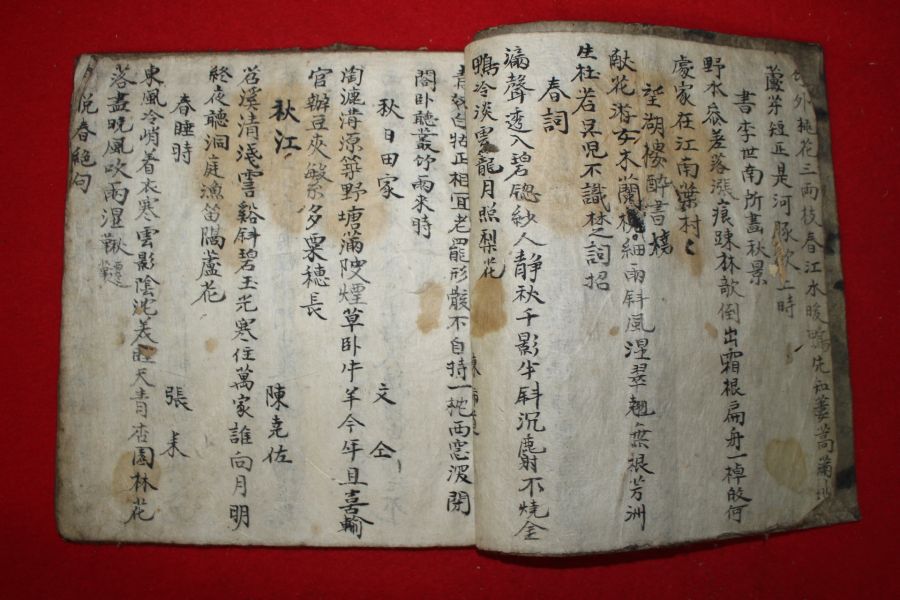 外桃花三兩枝春江水暖鴨先知蔞蒿地
蘆芽短正是河豚欲上時
書李世南所畫秋景
野水參差落漲痕踈林欹倒出霜根扁舟一棹皈何
處家在江南葉村
望湖樓醉書
献花游女木蘭橈細雨斜風湿翠翹無根芳洲
生杜若吳児不識楚詞招
春詞
漏聲透入碧窓紗人靜秋千影半斜沉麝不燒金
鴨冷淡雲龍月照梨花
青奴白牯正相宜老罷形骸不自持一枕西窓深閉
閤卧聽叢竹雨来時
秋日田家
文仝
淘漉溝源築野塘滿陂煙草卧牛羊今年且喜輸
官辦豆夾繁多粟穗長
秋江
陳堯佐
苕溪清淺霅谿斜碧玉光寒住萬家誰向月明
終夜聽洞庭漁笛隔蘆花
春睡時
張耒
東風冷峭着衣寒雲影陰沈天青杏園林花
落盡晚風吹雨湿鞦韆
悅春絶句